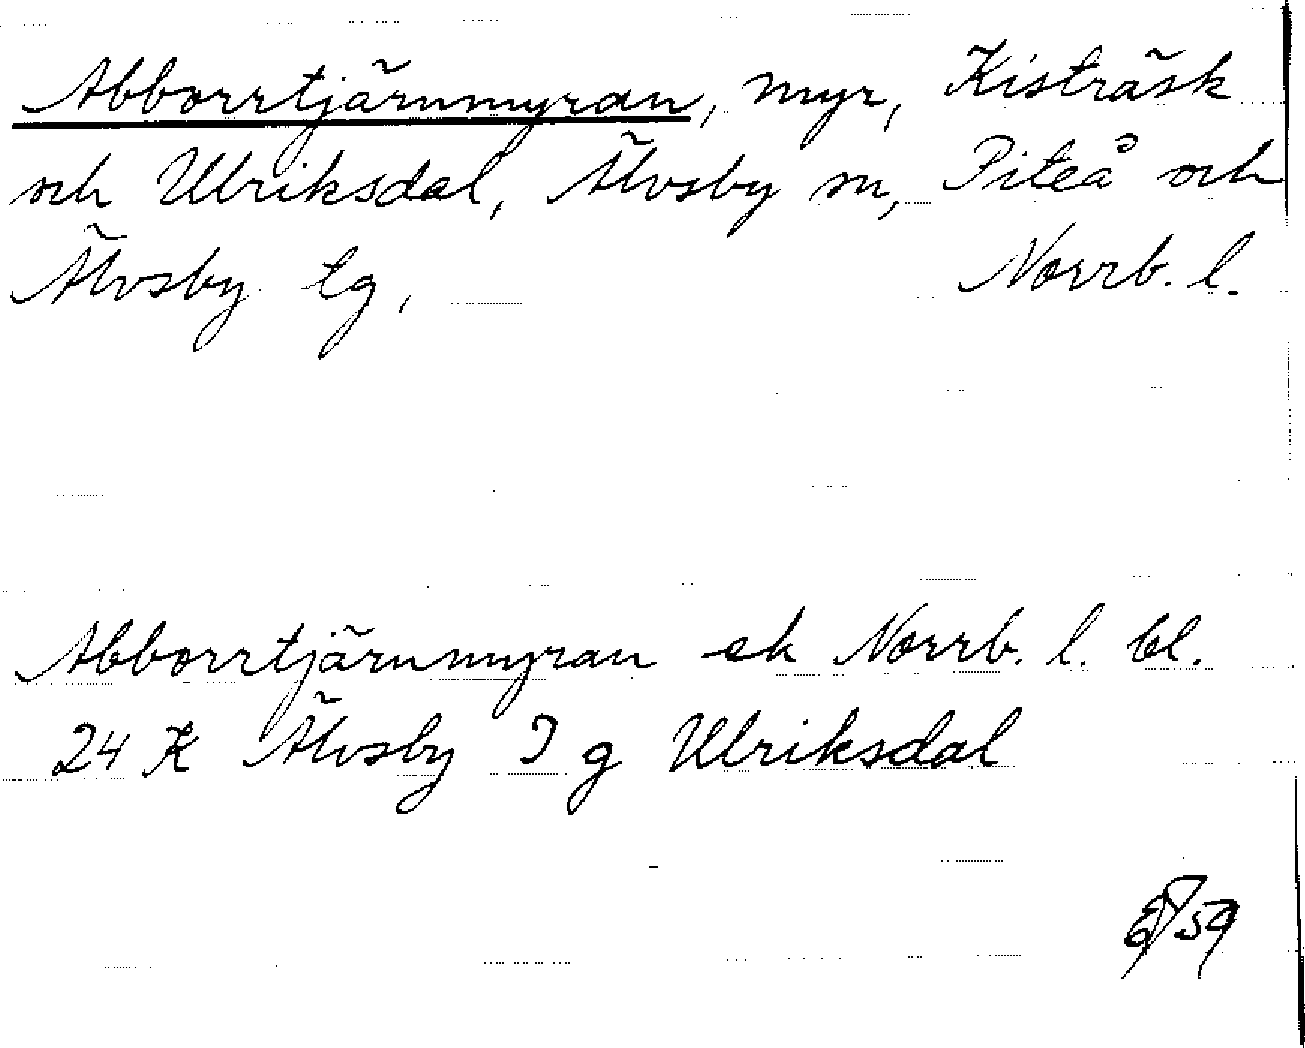 Abborrtjärnmyran, myr, Kisträsk
och Ulriksdal, Älvsby sn, Piteå och
Älvsby tg, Norrb. l.
Abborrtjärnmyran ek Norrb. l. bl.
24 K Älvsby I g Ulriksdal
59